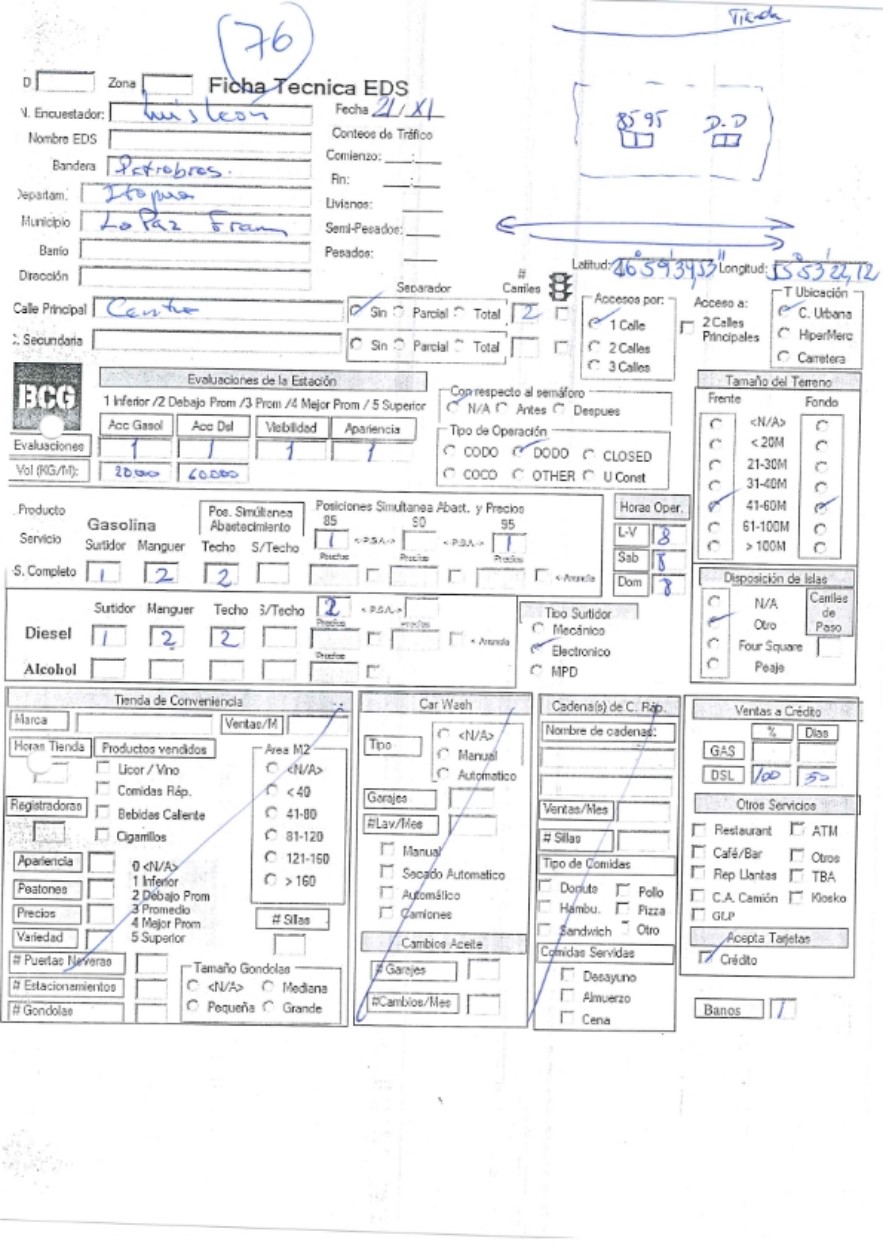 76
Tienda
D Zona Ficha Tecnica EDS
N. Encuestador: Luis Leon Fecha 21/XI
85 95 D.D
Nombre EDS Conteos de Tráfico
Bandera Petrobras. Comienzo: __:__
Departam. Itapua Fin: __:__
Livianos:
Municipio La Paz Fram Semi-Pesados:
Barrio Pesados:
Dirección
Latitud: Longitud:
Calle Principal Centro Separador # Carriles
Sin Parcial Total 2
C. Secundaria Sin Parcial Total
Accesos por:
1 Calle
2 Calles
3 Calles
Acceso a:
2 Calles
Principales
T Ubicación
C. Urbana
HiperMerc
Carretera
BCG
Evaluaciones de la Estación
1 Inferior /2 Debajo Prom /3 Prom /4 Mejor Prom / 5 Superior
Acc Gasol Acc Dsl Visibilidad Apariencia
Evaluaciones 1 1 1 1
Vol (KG/M): 20.000 60.000
Con respecto al semáforo
N/A Antes Despues
Tipo de Operación
CODO DODO CLOSED
COCO OTHER U Const
Tamaño del Terreno
Frente Fondo
<N/A>
< 20M
21-30M
31-40M
41-60M
61-100M
> 100M
Producto Gasolina Pos. Simúltanea Abastecimiento Posiciones Simultanea Abast. y Precios
Servicio 85 90 95
Surtidor Manguer Techo S/Techo 1 <-P.S.A.-> <-P.S.A.-> 1
Precios Precios Precios
S. Completo 1 2 2 < Arrenda
Horas Oper.
L-V 8
Sab 8
Dom 8
Disposición de Islas
N/A
Otro
Four Square
Peaje
Carriles de Paso
Surtidor Manguer Techo S/Techo 2 < P.S.A.->
Precios Precios
Diesel 1 2 2 < Arrenda
Precios
Alcohol
Tipo Surtidor
Mecánico
Electronico
MPD
Tienda de Conveniencia
Marca Ventas/M
Horas Tienda Productos vendidos
Licor / Vino
Comidas Ráp.
Registradoras Bebidas Caliente
Cigarrillos
Area M2
<N/A>
< 40
41-80
81-120
121-160
> 160
Apariencia 0 <N/A>
1 Inferior
Peatones 2 Debajo Prom
Precios 3 Promedio
4 Mejor Prom
Variedad 5 Superior
# Sillas
# Puertas Neveras
# Estacionamientos
# Gondolas
Tamaño Gondolas
<N/A> Mediana
Pequeña Grande
Car Wash
Tipo <N/A>
Manual
Automatico
Garajes
#Lav/Mes
Manual
Secado Automatico
Automático
Camiones
Cambios Aceite
# Garajes
#Cambios/Mes
Cadena(s) de C. Ráp.
Nombre de cadenas:
Ventas/Mes
# Sillas
Tipo de Comidas
Donuts Pollo
Hambu. Pizza
Sandwich Otro
Comidas Servidas
Desayuno
Almuerzo
Cena
Ventas a Crédito
% Dias
GAS
DSL 100 50
Otros Servicios
Restaurant ATM
Café/Bar Otros
Rep Llantas TBA
C.A. Camión Kiosko
GLP
Acepta Tarjetas
Crédito
Banos 1